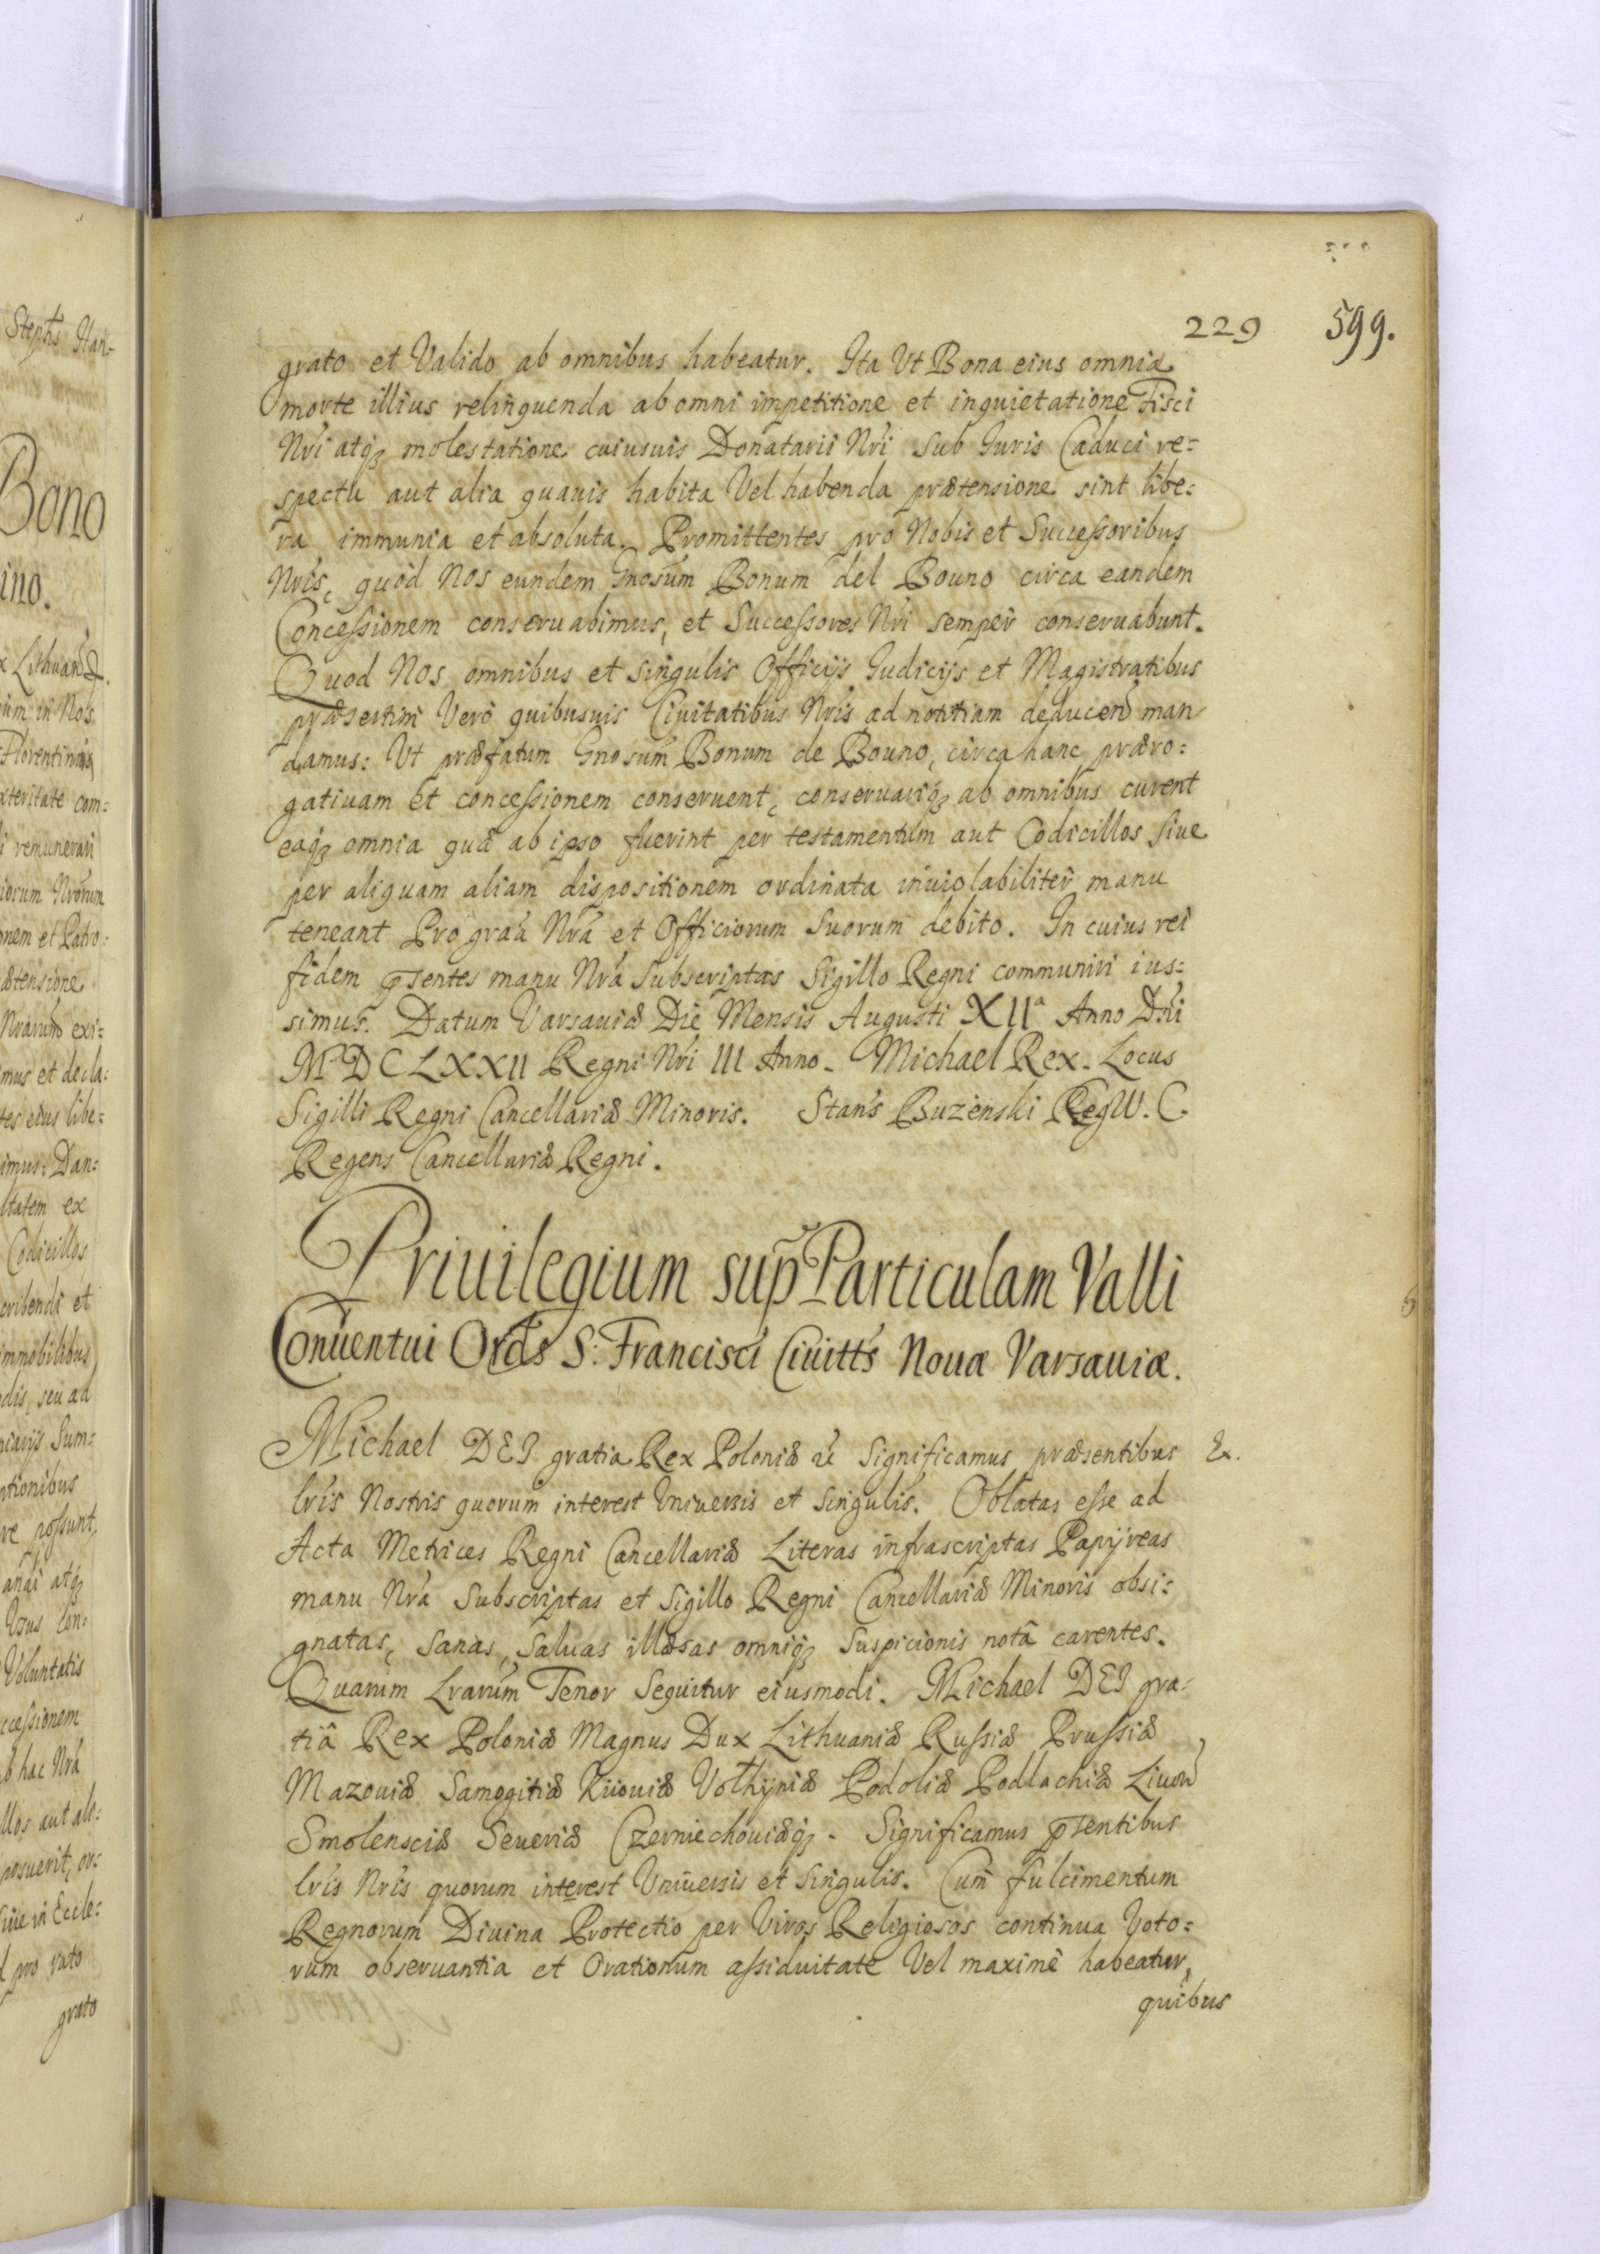 229 599.
grato et Valido ab omnibus habeatur. Ita Vt Bona eius omnia
morte illius relinquenda ab omni impetitione et inquietatione Fisci
Nri atq; molestatione cuiusuis Donatarii Nri sub Iuris Caduci re:
spectu aut alia quauis habita Vel habenda prætensione sint libe:
ra immunia et absoluta. Promittentes pro Nobis et Successoribus
Nris, quod Nos eundem Gnosum Bonum del Bouno circa eandem
Concessionem conseruabimus, et Successores Nri semper conseruabunt.
Quod Nos omnibus et singulis Officijs Iudicijs et Magistratibus
præsertim Vero quibusuis Ciuitatibus Nris ad notitiam deducen man
damus: Vt præfatum Gnosum Bonum de Bouno, circa hanc præro:
gatiuam et concessionem conseruent, conseruariq; ab omnibus curent
eaq; omnia quæ ab ipso fuerint per testamentum aut Codicillos siue
per aliquam aliam dispositionem ordinata inuiolabiliter manu
teneant Pro graa Nra et Officiorum suorum debito. In cuius rei
fidem pntes manu Nra subscriptas Sigillo Regni communiri ius:
simus. Datum Varsauiæ Die Mensis Augusti XIIa Anno Dni
MDCLXXII Regni Nri III Anno. Michael Rex. Locus
Sigilli Regni Cancellariæ Minoris. Stans Buzenski RegW. C.
Regens Cancellariæ Regni.
Priuilegium sup Particulam Valli
Conuentui Ords S: Francisci Ciuitts Nouæ Varsauiæ.
Michael DEI gratia Rex Poloniæ &c Significamus præsentibus Ex.
lris Nostris quorum interest Vniuersis et singulis. Oblatas esse ad
Acta Metrices Regni Cancellariæ Literas infrascriptas Papyreas
manu Nra Subscriptas et Sigillo Regni Cancellariæ Minoris obsi:
gnatas, sanas, saluas illæsas omniq; suspicionis notâ carentes.
Quarum Lrarum Tenor sequitur eiusmodi. Michael DEI gra:
tiâ Rex Poloniæ Magnus Dux Lithuaniæ Russiæ Prussiæ
Mazouiæ Samogitiæ Kijouiæ Volhyniæ Podoliæ Podlachiæ Liuon
Smolensciæ Seueriæ Czerniechouiæq;. Significamus pntibus
lris Nris quorum interest Vniuersis et singulis. Cum fulcimentum
Regnorum Diuina Protectio per Viros Religiosos continua Voto:
rum obseruantia et Orationum assiduitate Vel maximè habeatur,
quibus